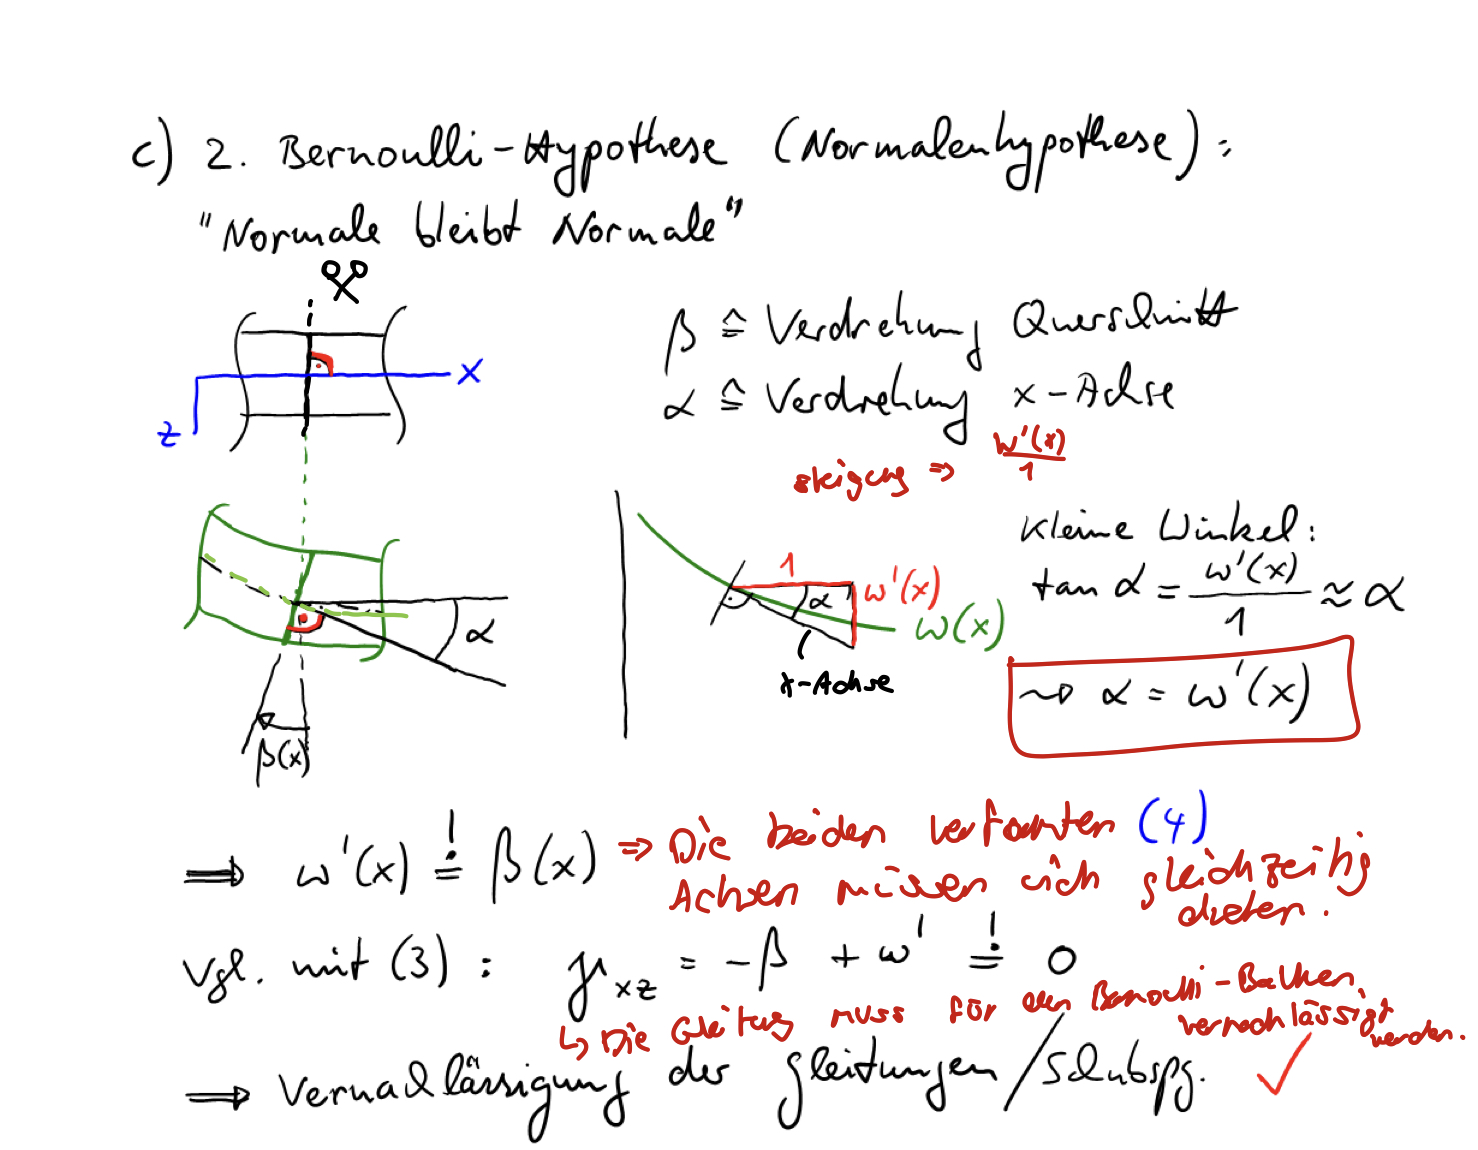 c) 2. Bernoulli-Hypothese (Normalenhypothese):
"Normale bleibt Normale"
β ≙ Verdrehung Querschnitt
α ≙ Verdrehung x-Achse
steigung ⇒ w'(x)/1
x
z
α
β(x)
1
α
w'(x)
w(x)
x-Achse
kleine Winkel:
tan α = w'(x)/1 ≈ α
⇝ α = w'(x)
⟹ w'(x) =! β(x) ⇒ Die beiden verformten (4)
Achsen müssen sich gleichzeitig
drehen.
vgl. mit (3): γxz = -β + w' =! 0
↳ Die Gleitung muss für den Bernoulli-Balken
vernachlässigt
werden.
⟹ Vernachlässigung der Gleitungen/Schubspg. ✓